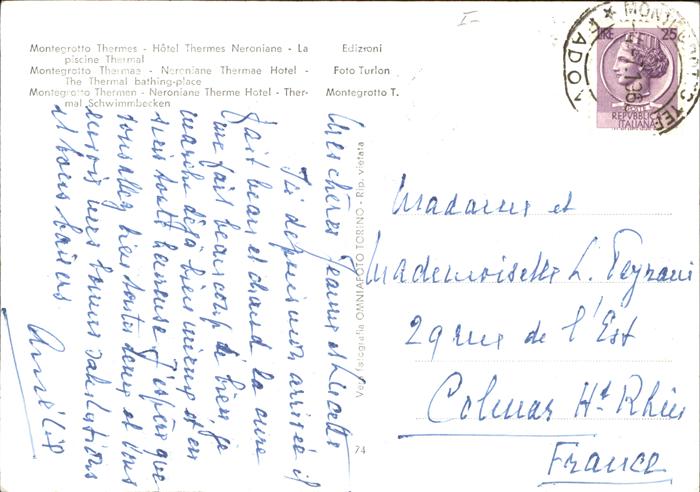 Montegrotto Thermes - Hôtel Thermes Neroniane - La
piscine Thermal
Montegrotto Thermae - Neroniane Thermae Hotel -
The Thermal bathing-place
Montegrotto Thermen - Neroniane Therme Hotel - Ther-
mal Schwimmbecken
Edizioni
Foto Turlon
Montegrotto T.
LIRE 25
REPVBBLICA
ITALIANA
PADOVA
Vera fotografia OMNIAFOTO TORINO - Rip. vietata
74
Mes chères Jeanne et Lucette
Ici depuis mon arrivée il
fait beau et chaud. La cure
me fait beaucoup de bien, je
marche déjà bien mieux et en
suis toute heureuse. J'espère que
vous allez bien toutes deux et vous
envoie mes bonnes salutations
et bons baisers
Amélie
Madame et
Mademoiselle L. Peyrani
29 rue de l'Est
Colmar Ht Rhin
France